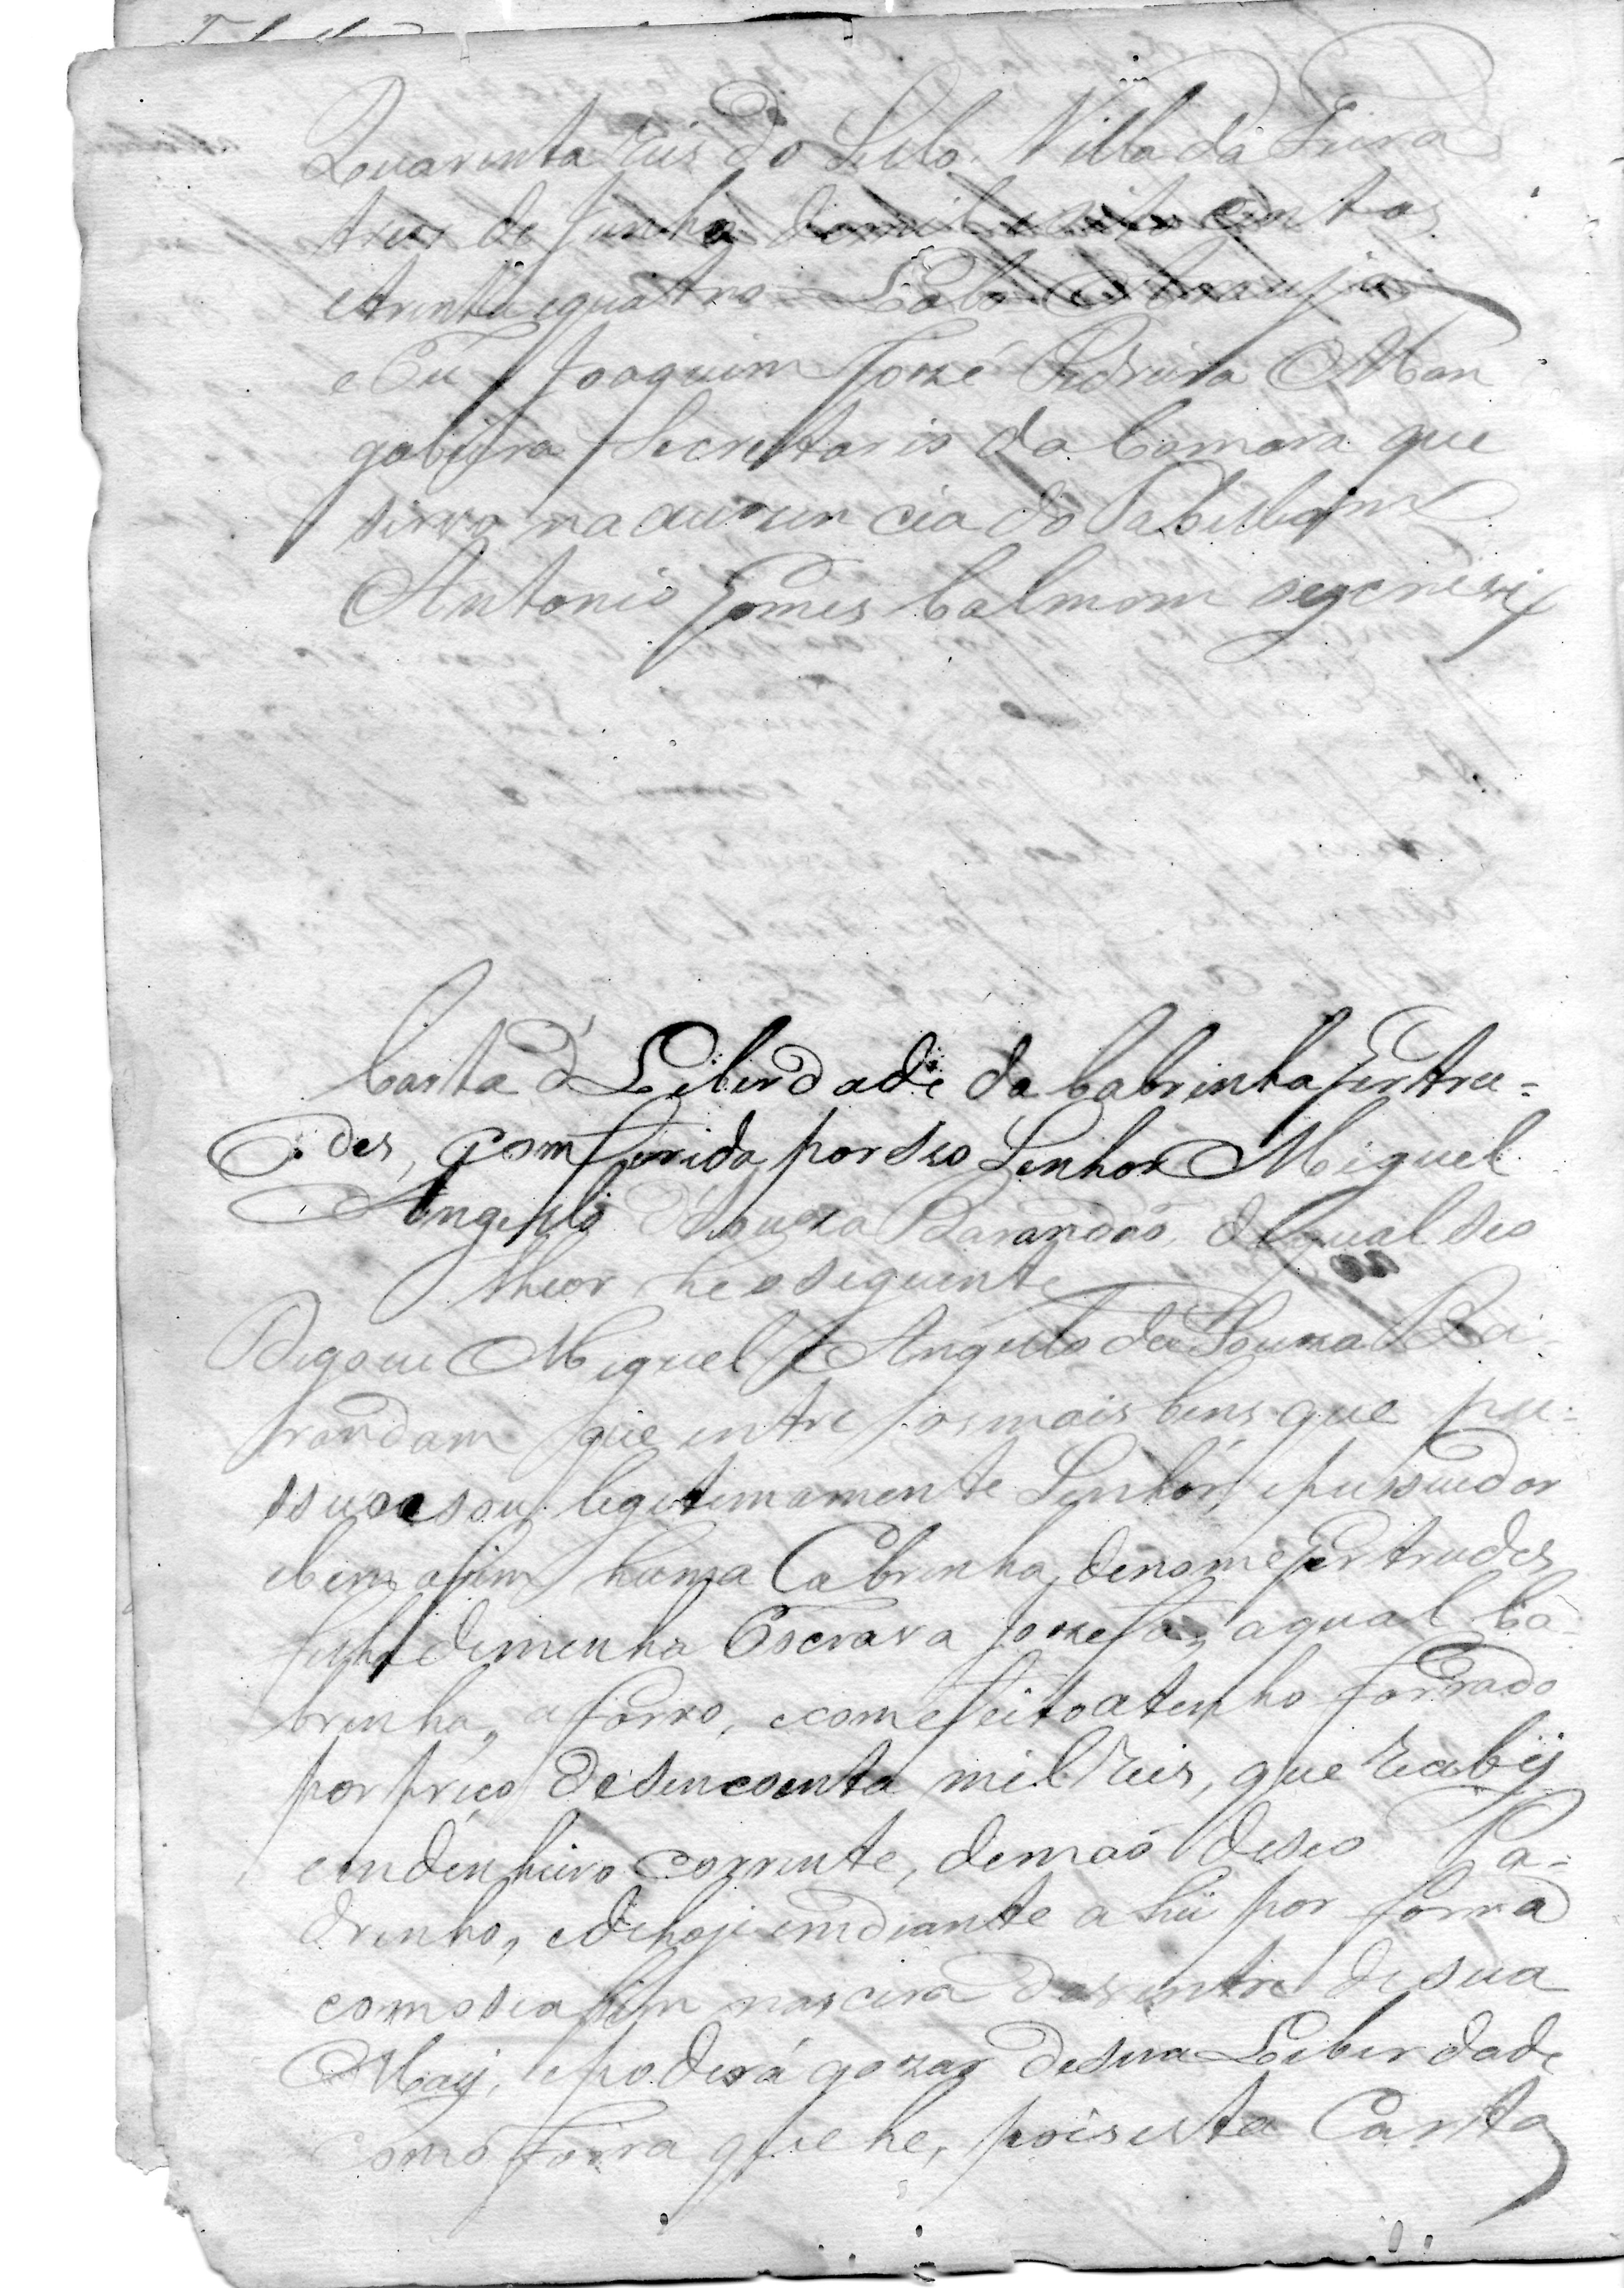 Quarenta reis do Sello. Villa da Feira
tres de Junho de mil e oito centos
e trinta e quatro = Lobo = Araujo
e Eu Joaquim Jozé Pedreira Man
gabeira Secretario da Camara que
sirvo na auzencia do Tabelliam
Antonio Gomes Calmom o escrevi
Carta d' Leberdade da Cabrinha Gertru=
des, comferida por seo Senhor Miguel
Angello d'Souza Barandão, da qual seo
theor he o seguinte
Digo eu Miguel Angello de Souza Ba
randam que entre os mais bens que pu=
ssuo e sou legitimamente Senhor, e pussuedor
e bem asim huma Cabrinha de nome Gertrudes
filha de minha Escrava Jozefa, a qual Ca=
brinha, aforro, e com efeito a tenho forrado
por preço de sincoenta mil reis, que recebij
em denheiro corrente, de mão de seo Pa=
drinho, e de hoje em diante a hei por forra
como se asim nascera do ventre de sua
Maij, e poderá gozar de sua Leiberdade
como forra que he, pois esta Carta